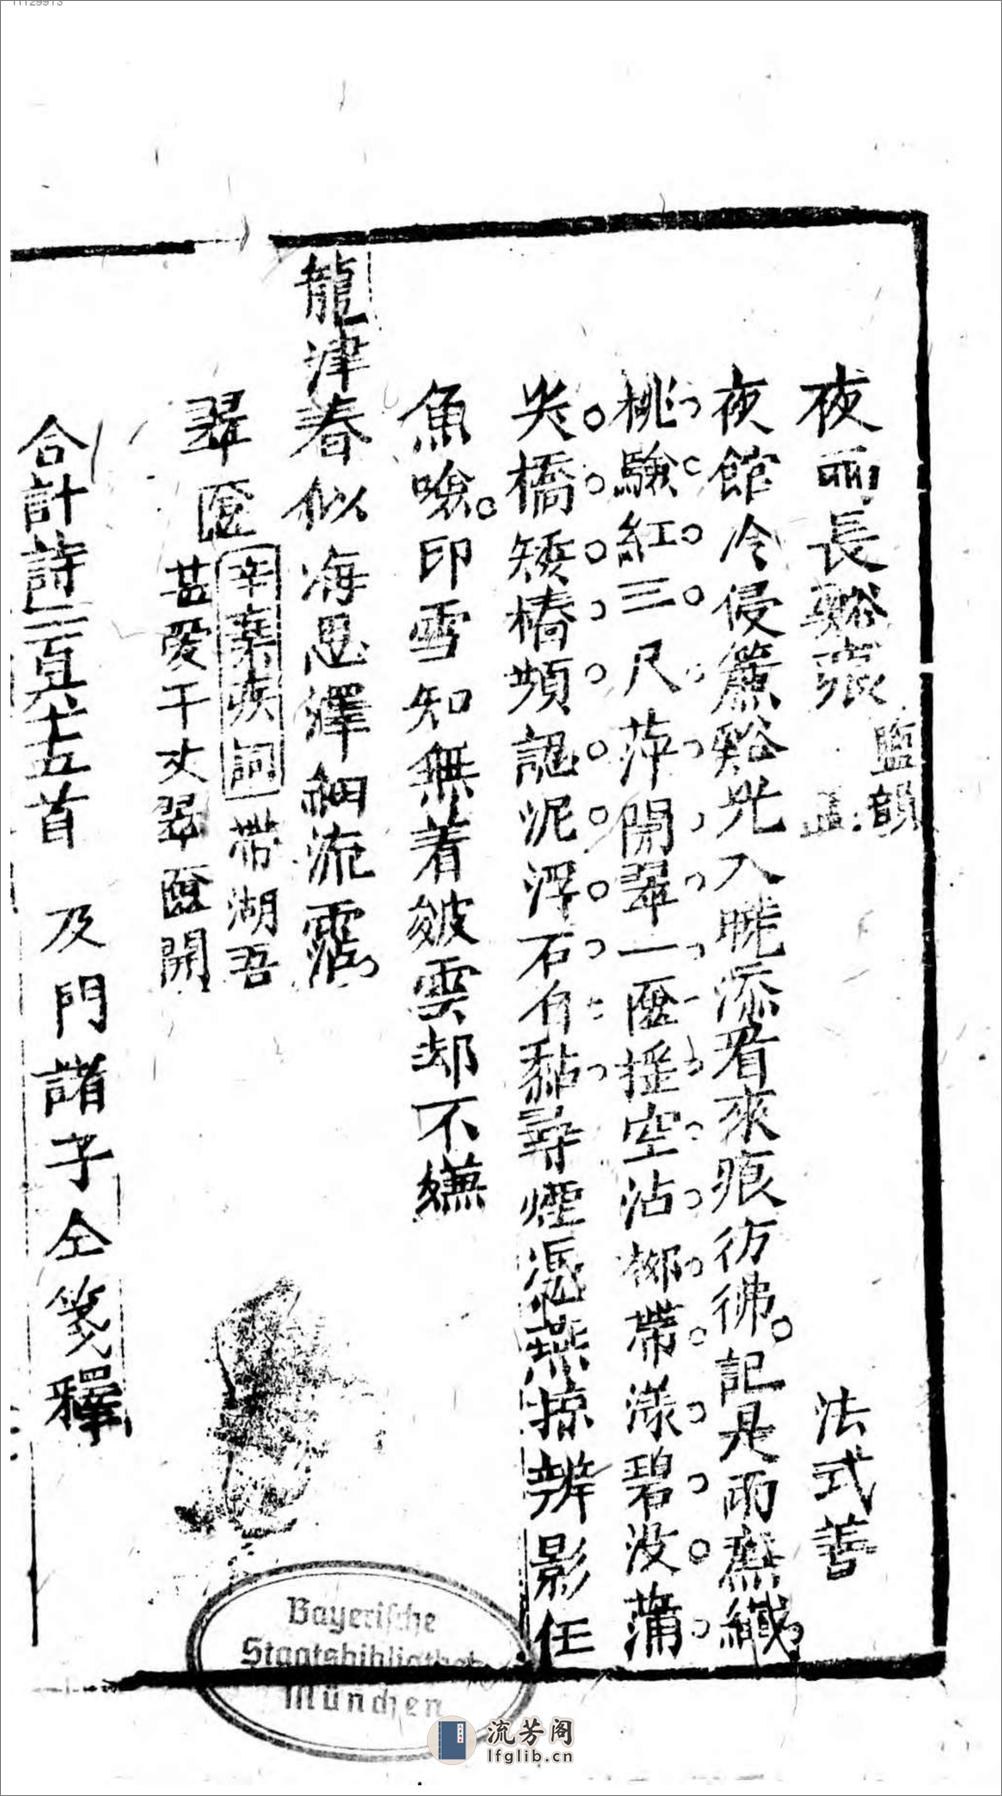 夜雨長谿痕 鹽韻 法式善
夜館冷侵簾谿光入曉添看來痕彷彿記是雨無纖
桃驗紅三尺萍開翠一匳摇空沾柳帶漾碧没蒲
尖橋矮樁頻認泥浮石自黏尋煙憑燕掠辨影任
魚噞印雪知無着皴雲却不嫌
龍津春似海恩澤細流霑
翠匳
辛棄疾詞帶湖吾
甚愛千丈翠匳開
合計詩二百七十五首 及門諸子仝箋釋
Bayerische
Staatsbibliothek
München
流芳阁
lfglib.cn